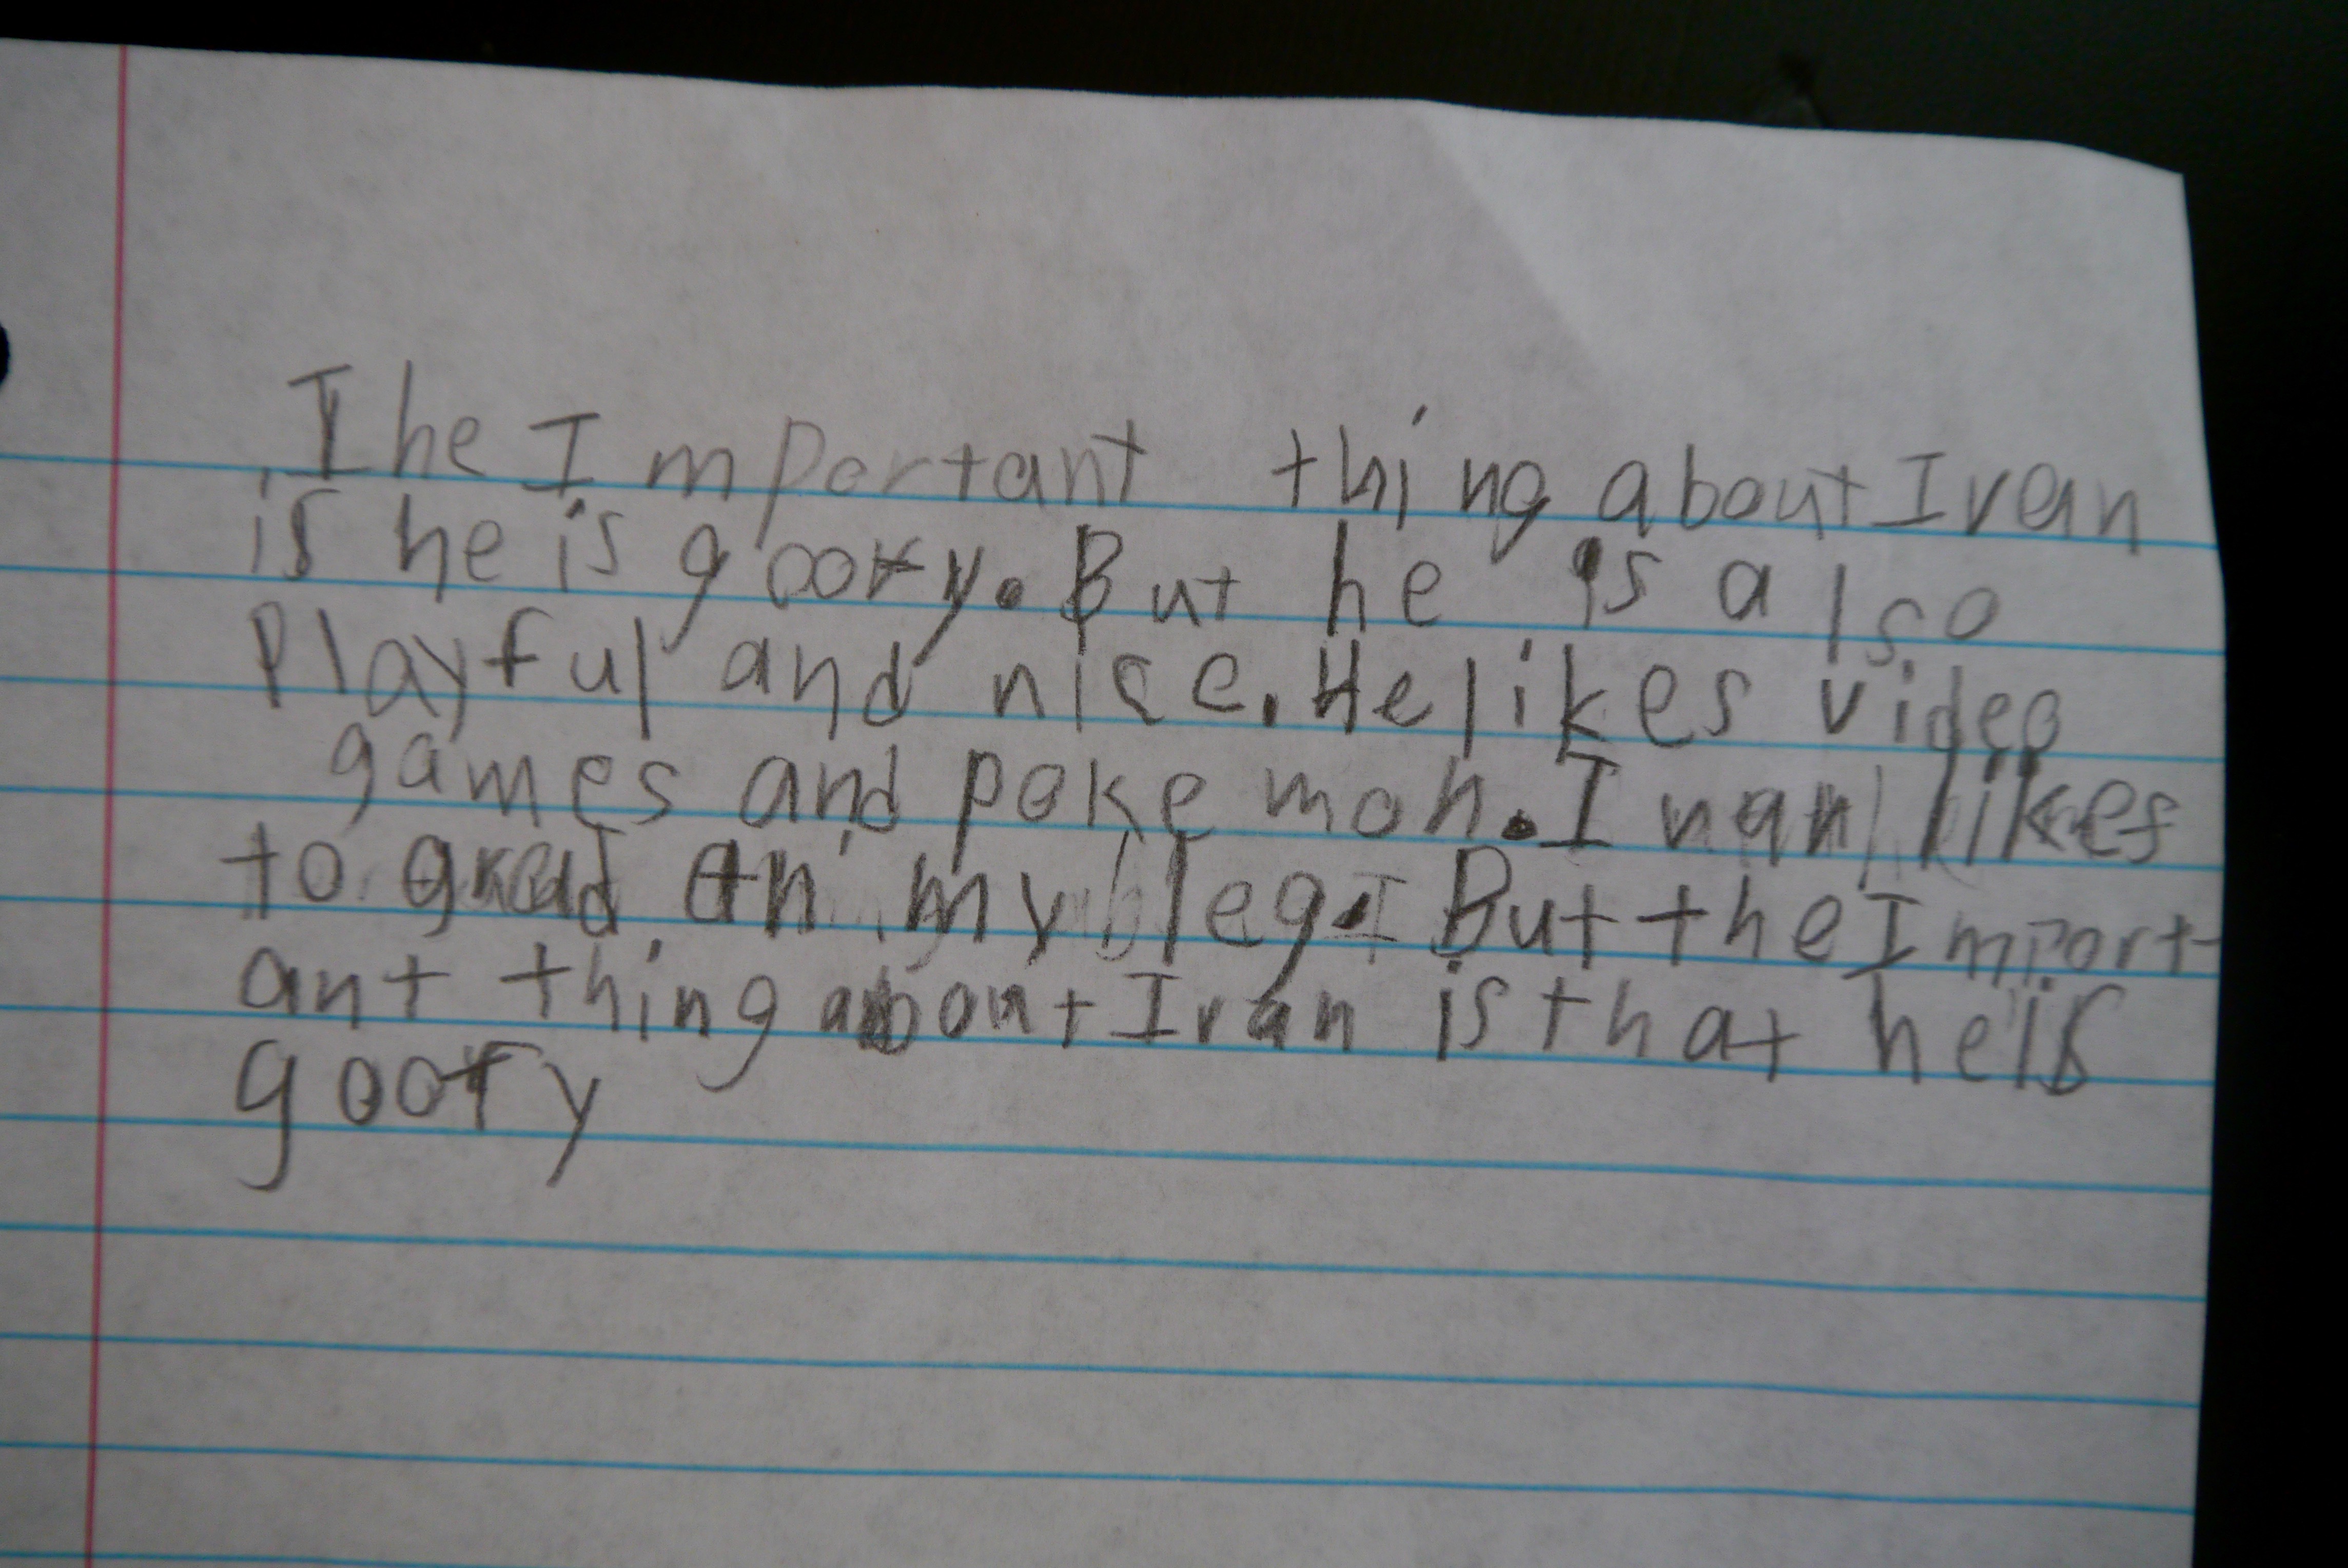 The Important thing about Ivan
is he is goofy. But he is also
Playful and nice. He likes video
games and poke mon. Ivan likes
to on my leg. But the Import-
ant thing about Ivan is that he is
goofy